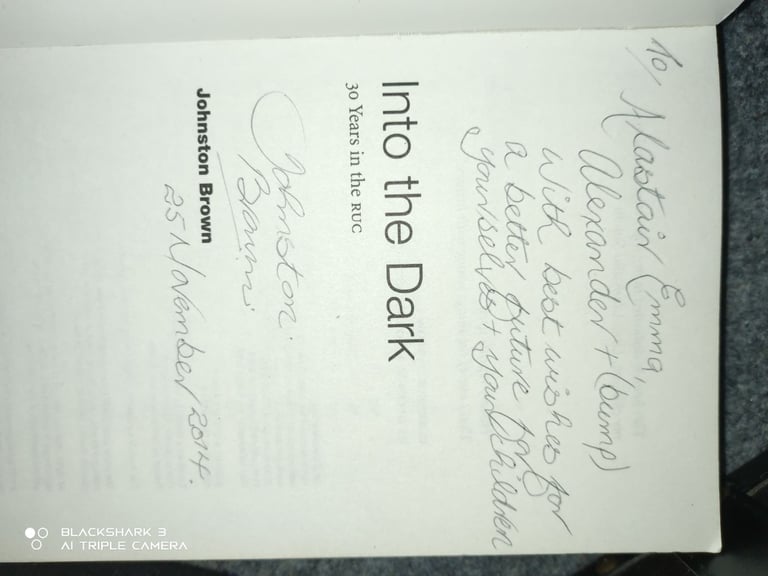 To/ Alastair Emma,
Alexander + (bump)
With best wishes for
a better future for
yourselves + your children
Into the Dark
30 Years in the RUC
Johnston
Brown
Johnston Brown
25 November 2014.
BLACKSHARK 3
AI TRIPLE CAMERA